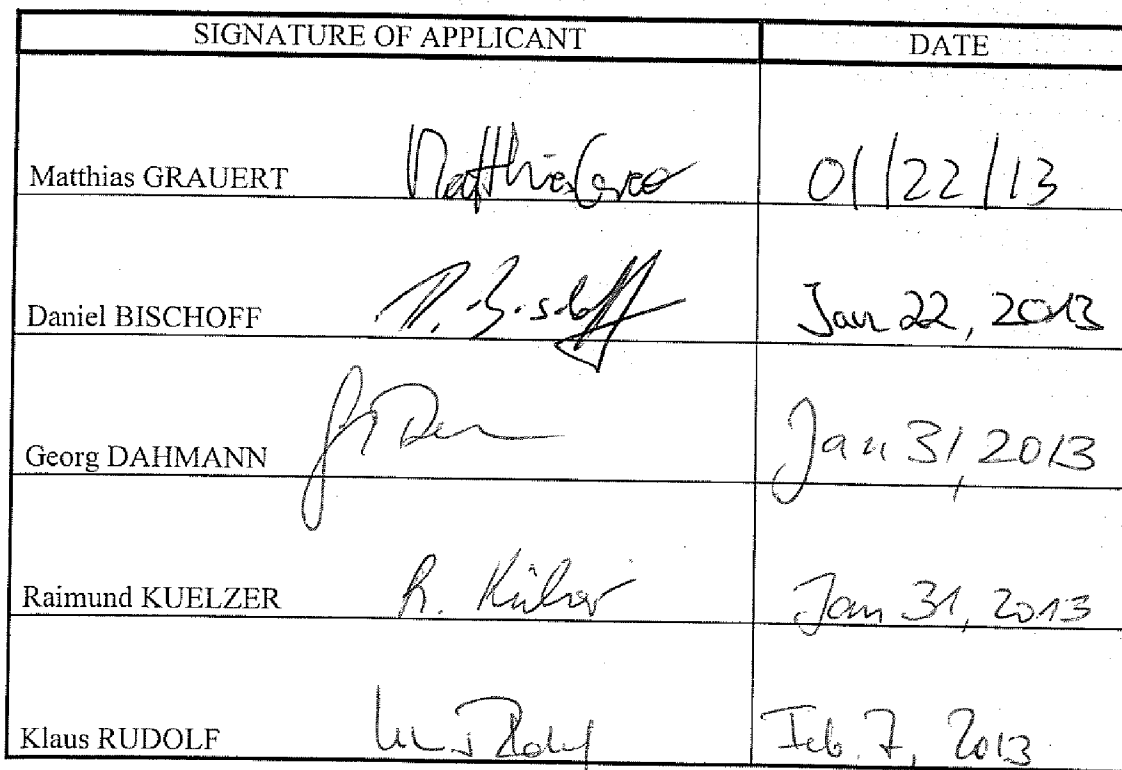 SIGNATURE OF APPLICANT DATE
Matthias GRAUERT 01/22/13
Daniel BISCHOFF D. Bischoff Jan 22, 2013
Georg DAHMANN Jan 31, 2013
Raimund KUELZER R. Külzer Jan 31, 2013
Klaus RUDOLF Feb. 7, 2013